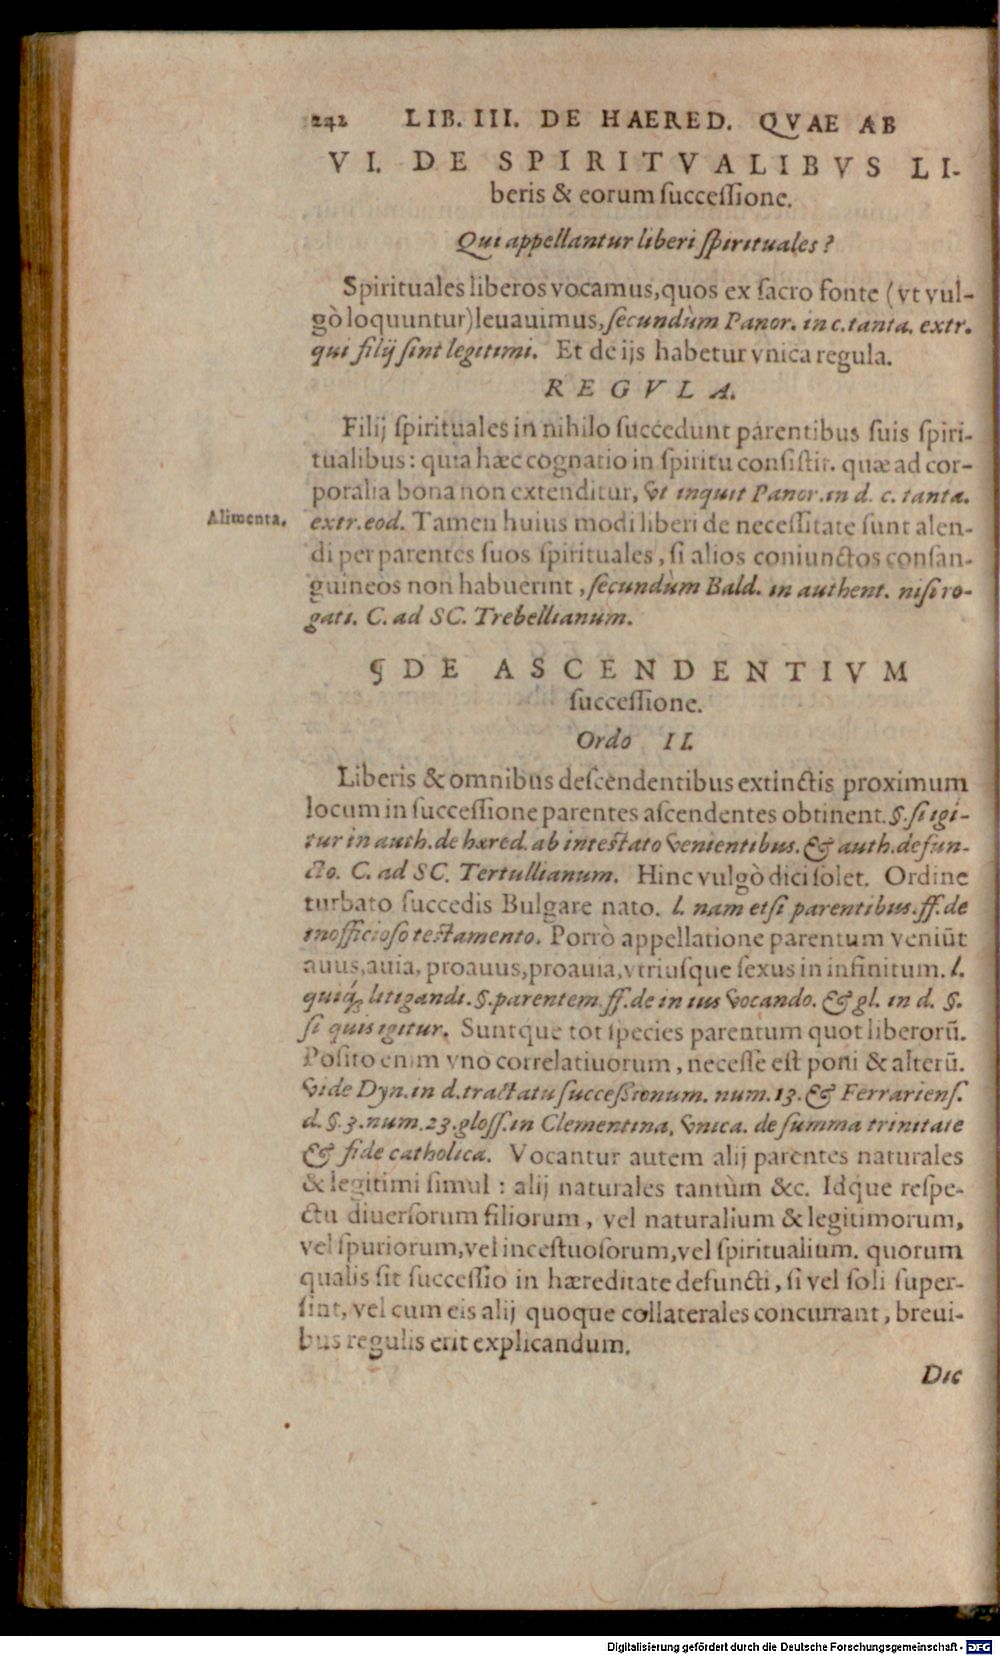 242 LIB. III. DE HAERED. QVAE AB
VI. DE SPIRITVALIBVS LI-
beris & eorum ſucceſſione.
Qui appellantur liberi ſpirituales?
Spirituales liberos vocamus, quos ex ſacro fonte (vt vul-
gò loquuntur) leuauimus, ſecundùm Panor. in c. tanta. extr.
qui filij ſint legitimi. Et de ijs habetur vnica regula.
REGVLA.
Filij ſpirituales in nihilo ſuccedunt parentibus ſuis ſpiri-
tualibus: quia hæc cognatio in ſpiritu conſiſtit. quæ ad cor-
poralia bona non extenditur, vt inquit Panor. in d. c. tanta.
Alimenta. extr. eod. Tamen huius modi liberi de neceſſitate ſunt alen-
di per parentes ſuos ſpirituales, ſi alios coniunctos conſan-
guineos non habuerint, ſecundùm Bald. in authent. niſi ro-
gati. C. ad SC. Trebellianum.
¶ DE ASCENDENTIVM
ſucceſſione.
Ordo II.
Liberis & omnibus deſcendentibus extinctis proximum
locum in ſucceſſione parentes aſcendentes obtinent. §. ſi igi-
tur in auth. de hæred. ab inteſtato venientibus. & auth. defun-
cto. C. ad SC. Tertullianum. Hinc vulgò dici ſolet. Ordine
turbato ſuccedis Bulgare nato. l. nam etſi parentibus. ff. de
inofficioſo teſtamento. Porrò appellatione parentum veniūt
auus, auia, proauus, proauia, vtriuſque ſexus in infinitum. l.
quiq́; litigandi. §. parentem. ff. de in ius vocando. & gl. in d. §.
ſi quis igitur. Suntque tot ſpecies parentum quot liberorū.
Poſito enim vno correlatiuorum, neceſſe eſt poni & alterū.
vide Dyn. in d. tractatu ſucceſſionum. num. 13. & Ferrarienſ.
d. §. 3. num. 23. gloſſ. in Clementina, vnica. de ſumma trinitate
& fide catholica. Vocantur autem alij parentes naturales
& legitimi ſimul: alij naturales tantùm &c. Idque reſpe-
ctu diuerſorum filiorum, vel naturalium & legitimorum,
vel ſpuriorum, vel inceſtuoſorum, vel ſpiritualium. quorum
qualis ſit ſucceſſio in hæreditate defuncti, ſi vel ſoli ſuper-
ſint, vel cum eis alij quoque collaterales concurrant, breui-
bus regulis erit explicandum.
Dic
Digitalisierung gefördert durch die Deutsche Forschungsgemeinschaft - DFG